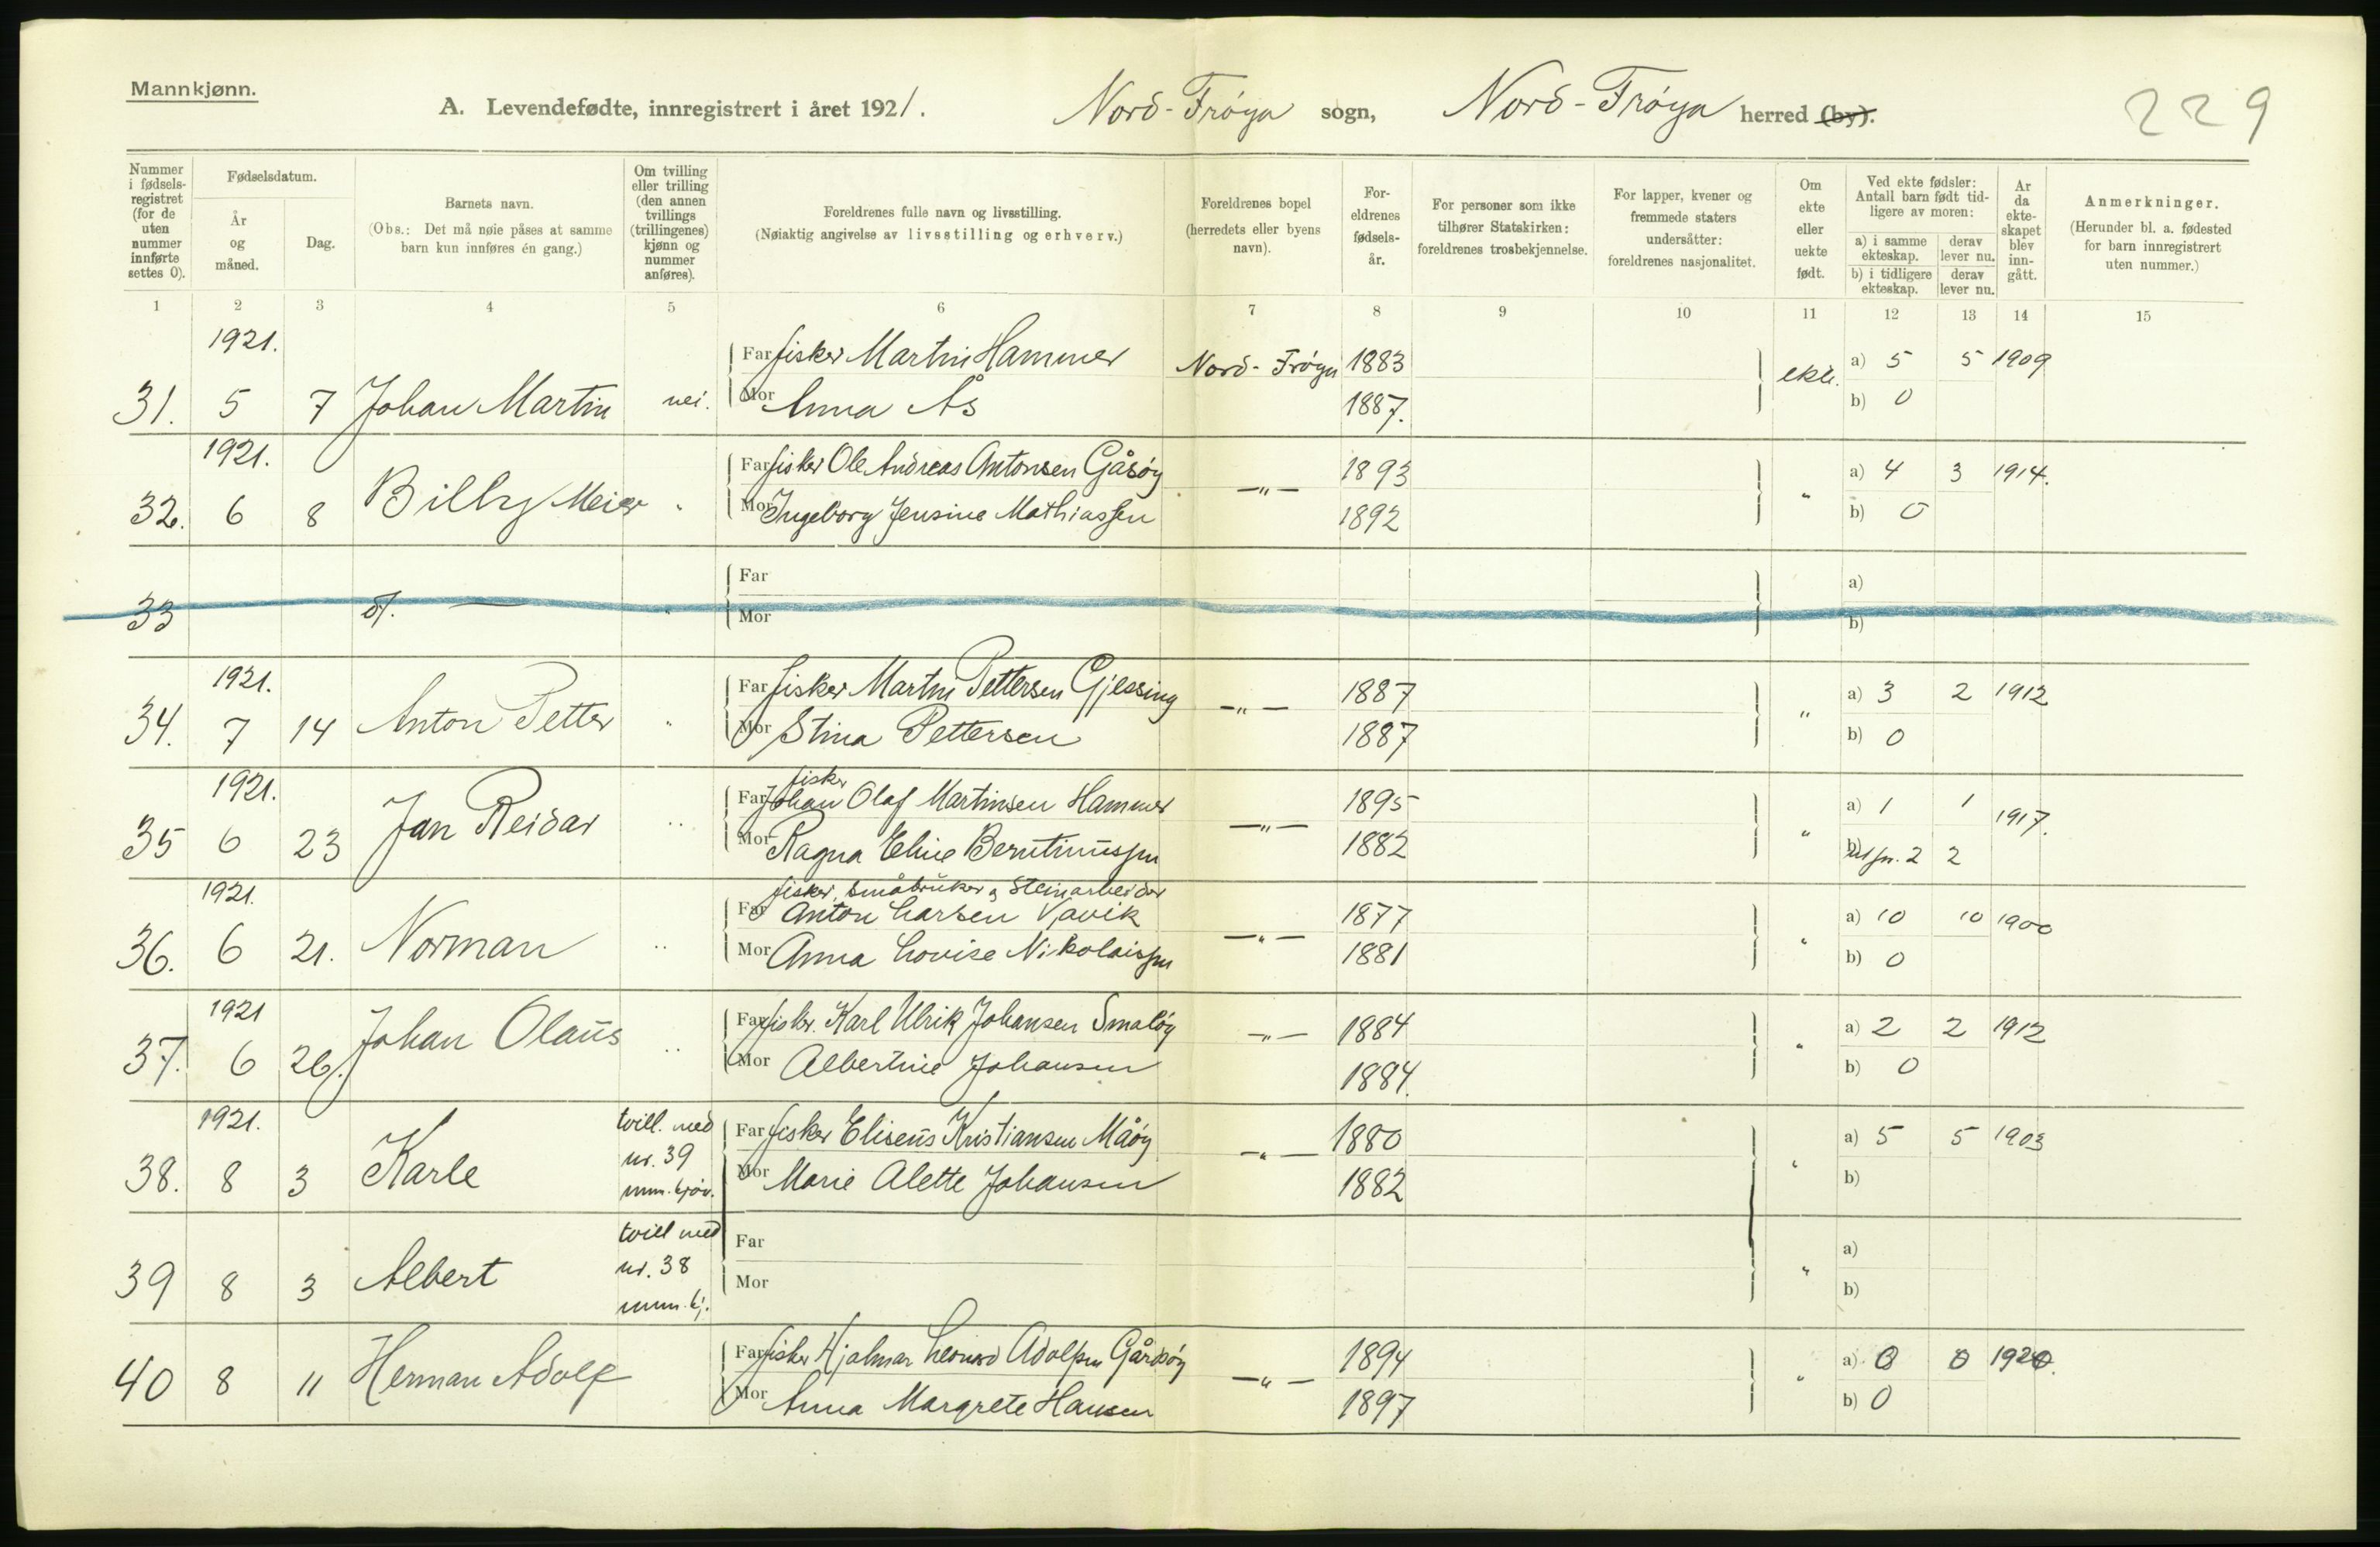 Mannkjønn.
A. Levendefødte, innregistrert i året 1921. Nord-Frøya sogn, Nord-Frøya herred (by). 229
Nummer i fødselsregistret (for de uten nummer innførte settes 0).
Fødselsdatum.
År og måned.
Dag.
Barnets navn.
(Obs.: Det må nøie påses at samme barn kun innføres én gang.)
Om tvilling eller trilling (den annen tvillings (trillingenes) kjønn og nummer anføres).
Foreldrenes fulle navn og livsstilling.
(Nøiaktig angivelse av livsstilling og erhverv.)
Foreldrenes bopel (herredets eller byens navn).
Foreldrenes fødselsår.
For personer som ikke tilhører Statskirken: foreldrenes trosbekjennelse.
For lapper, kvener og fremmede staters undersåtter: foreldrenes nasjonalitet.
Om ekte eller uekte født.
Ved ekte fødsler: Antall barn født tidligere av moren:
a) i samme ekteskap. derav lever nu.
b) i tidligere ekteskap. derav lever nu.
År da ekteskapet blev inngått.
Anmerkninger.
(Herunder bl. a. fødested for barn innregistrert uten nummer.)
1 2 3 4 5 6 7 8 9 10 11 12 13 14 15
1921.
31. 5 7 Johan Martin nei. Far fisker Martin Hammer Nord-Frøya 1883 ekte. a) 5 5 1909
Mor Anna Ås 1887. b) 0
1921.
32. 6 8 Billy Meier " Far fisker Ole Andreas Antonsen Gåsøy —"— 1893 " a) 4 3 1914.
Mor Ingeborg Jensine Mathiassen 1892 b) 0
33 " Far a)
Mor b)
1921.
34. 7 14 Anton Petter " Far fisker Martin Pettersen Gjessing —"— 1887 " a) 3 2 1912
Mor Stina Pettersen 1887 b) 0
1921.
fisker
35 6 23 Jan Reidar " Far Johan Olaf Martinsen Hammer —"— 1895 " a) 1 1 1917.
Mor Ragna Eline Berntinussen 1882 2 2
1921.
fisker, småbruker og Steinarbeider
36. 6 21. Norman " Far Anton Larsen Vavik —"— 1877 " a) 10 10 1900
Mor Anna Lovise Nikolaisen 1881 b) 0
1921
37. 6 26. Johan Olaus " Far fisker. Karl Ulrik Johansen Smaløy —"— 1884 " a) 2 2 1912
Mor Albertine Johansen 1884. b) 0
1921.
38. 8 3 Karle tvill. med nr. 39 Far fisker Eliseus Kristiansen Måøy —"— 1880 " a) 5 5 1903
Mor Marie Alette Johansen 1882 b)
39 8 3 Albert tvill med nr. 38 Far " a)
Mor b)
40 8 11 Herman Adolf Far fisker Hjalmar Leonard Adolfsen Gårdsøy —"— 1894 " a) 0 0 1920.
Mor Anna Margrete Hansen 1897 b) 0